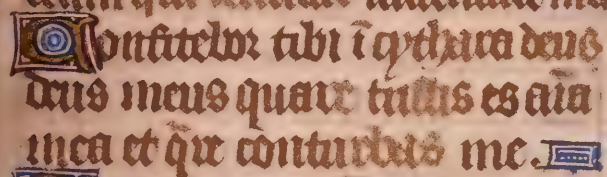 Confitebor tibi ī cythara deus
deus meus quare tristis es aīa
mea et q̄re conturbas me.